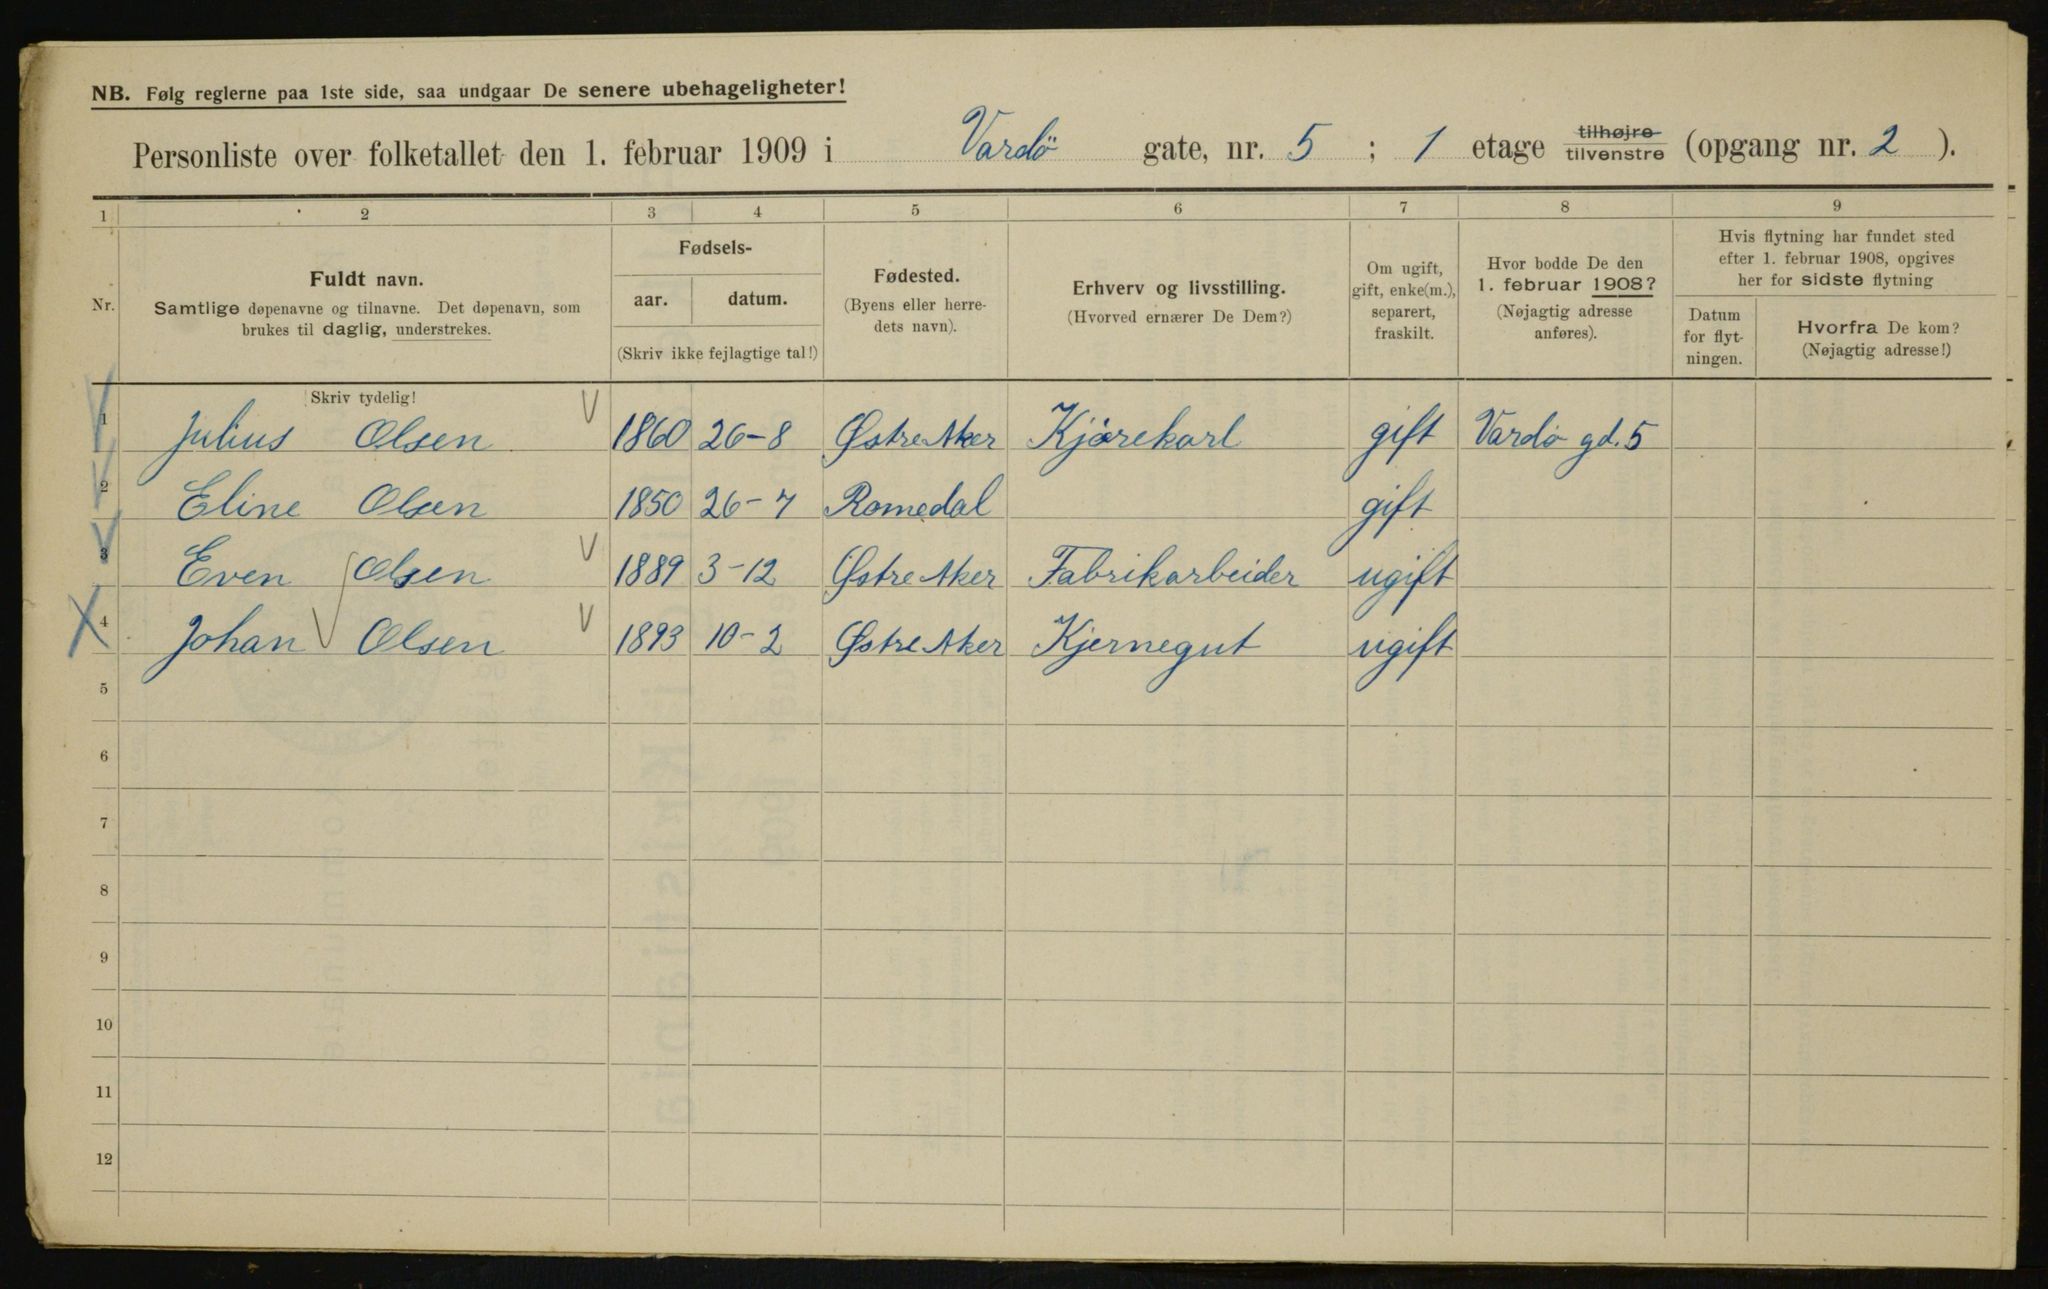 NB. Følg reglerne paa 1ste side, saa undgaar De senere ubehageligheter!
Personliste over folketallet den 1. februar 1909 i Vardö gate, nr. 5 ; 1 etage tilhøjre tilvenstre (opgang nr. 2 ).
1 2 3 4 5 6 7 8 9
Nr.
Fuldt navn.
Samtlige døpenavne og tilnavne. Det døpenavn, som
brukes til daglig, understrekes.
Fødsels-
aar. datum.
(Skriv ikke fejlagtige tal!)
Fødested.
(Byens eller herre-
dets navn).
Erhverv og livsstilling.
(Hvorved ernærer De Dem?)
Om ugift,
gift, enke(m.),
separert,
fraskilt.
Hvor bodde De den
1. februar 1908?
(Nøjagtig adresse
anføres).
Hvis flytning har fundet sted
efter 1. februar 1908, opgives
her for sidste flytning
Datum
for flyt-
ningen.
Hvorfra De kom?
(Nøjagtig adresse!)
Skriv tydelig!
1 Julius Olsen 1860 26-8 Østre Aker Kjörekarl gift Vardö gd. 5
2 Eline Olsen 1850 26-7 Romedal gift
3 Even Olsen 1889 3-12 Østre Aker Fabrikarbeider ugift
4 Johan Olsen 1893 10-2 Østre Aker Kjernegut ugift
5
6
7
8
9
10
11
12